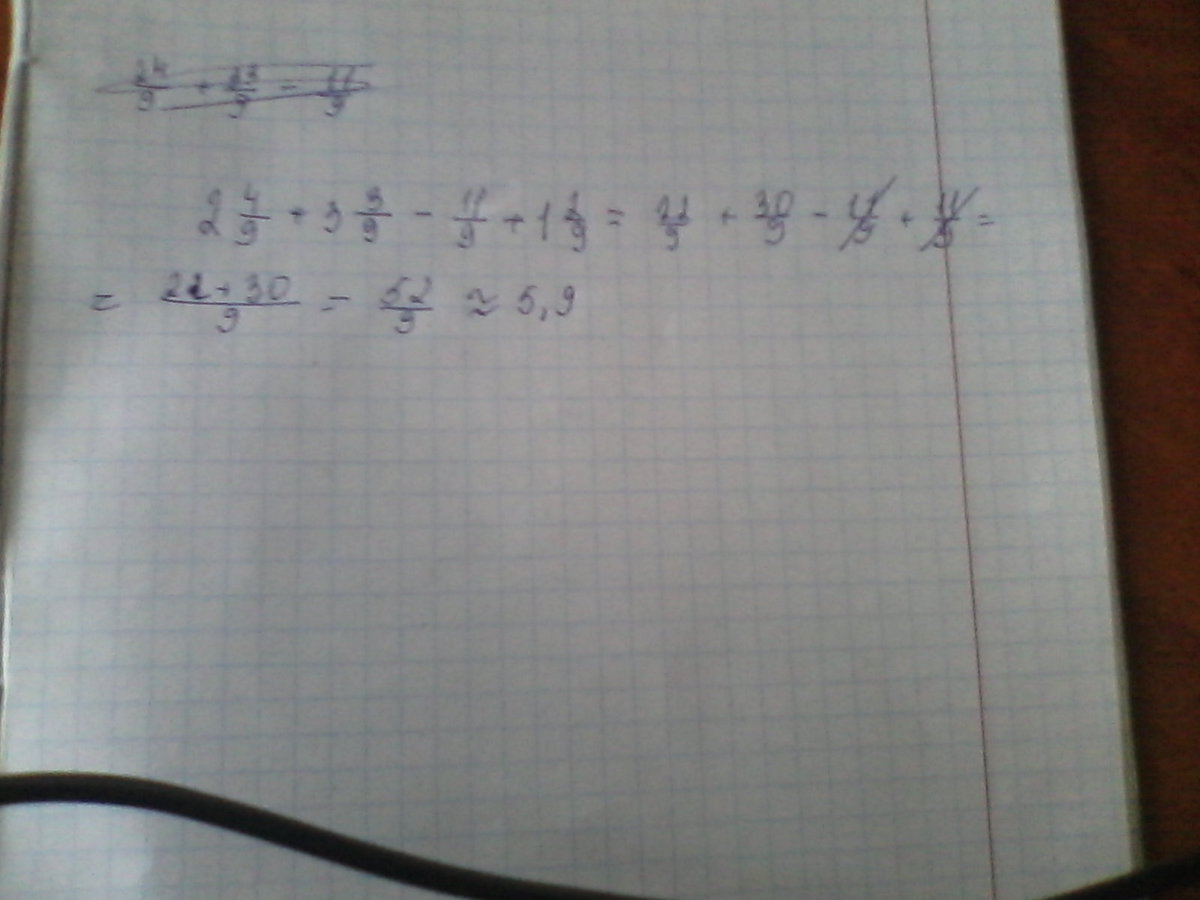 24/9 + 33/9 - 11/9
2 4/9 + 3 3/9 - 11/9 + 1 2/9 = 22/9 + 30/9 - 11/9 + 11/9 =
= 22+30/9 = 52/9 ≈ 5,9